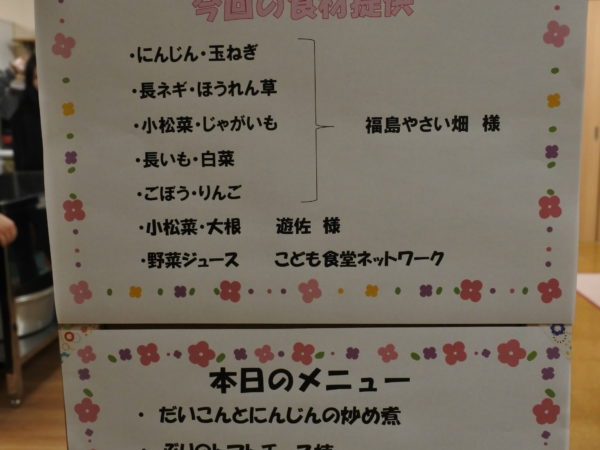 今回の食材提供
・にんじん・玉ねぎ
・長ネギ・ほうれん草
・小松菜・じゃがいも
・長いも・白菜
・ごぼう・りんご
福島やさい畑 様
・小松菜・大根 遊佐 様
・野菜ジュース こども食堂ネットワーク
本日のメニュー
・ だいこんとにんじんの炒め煮